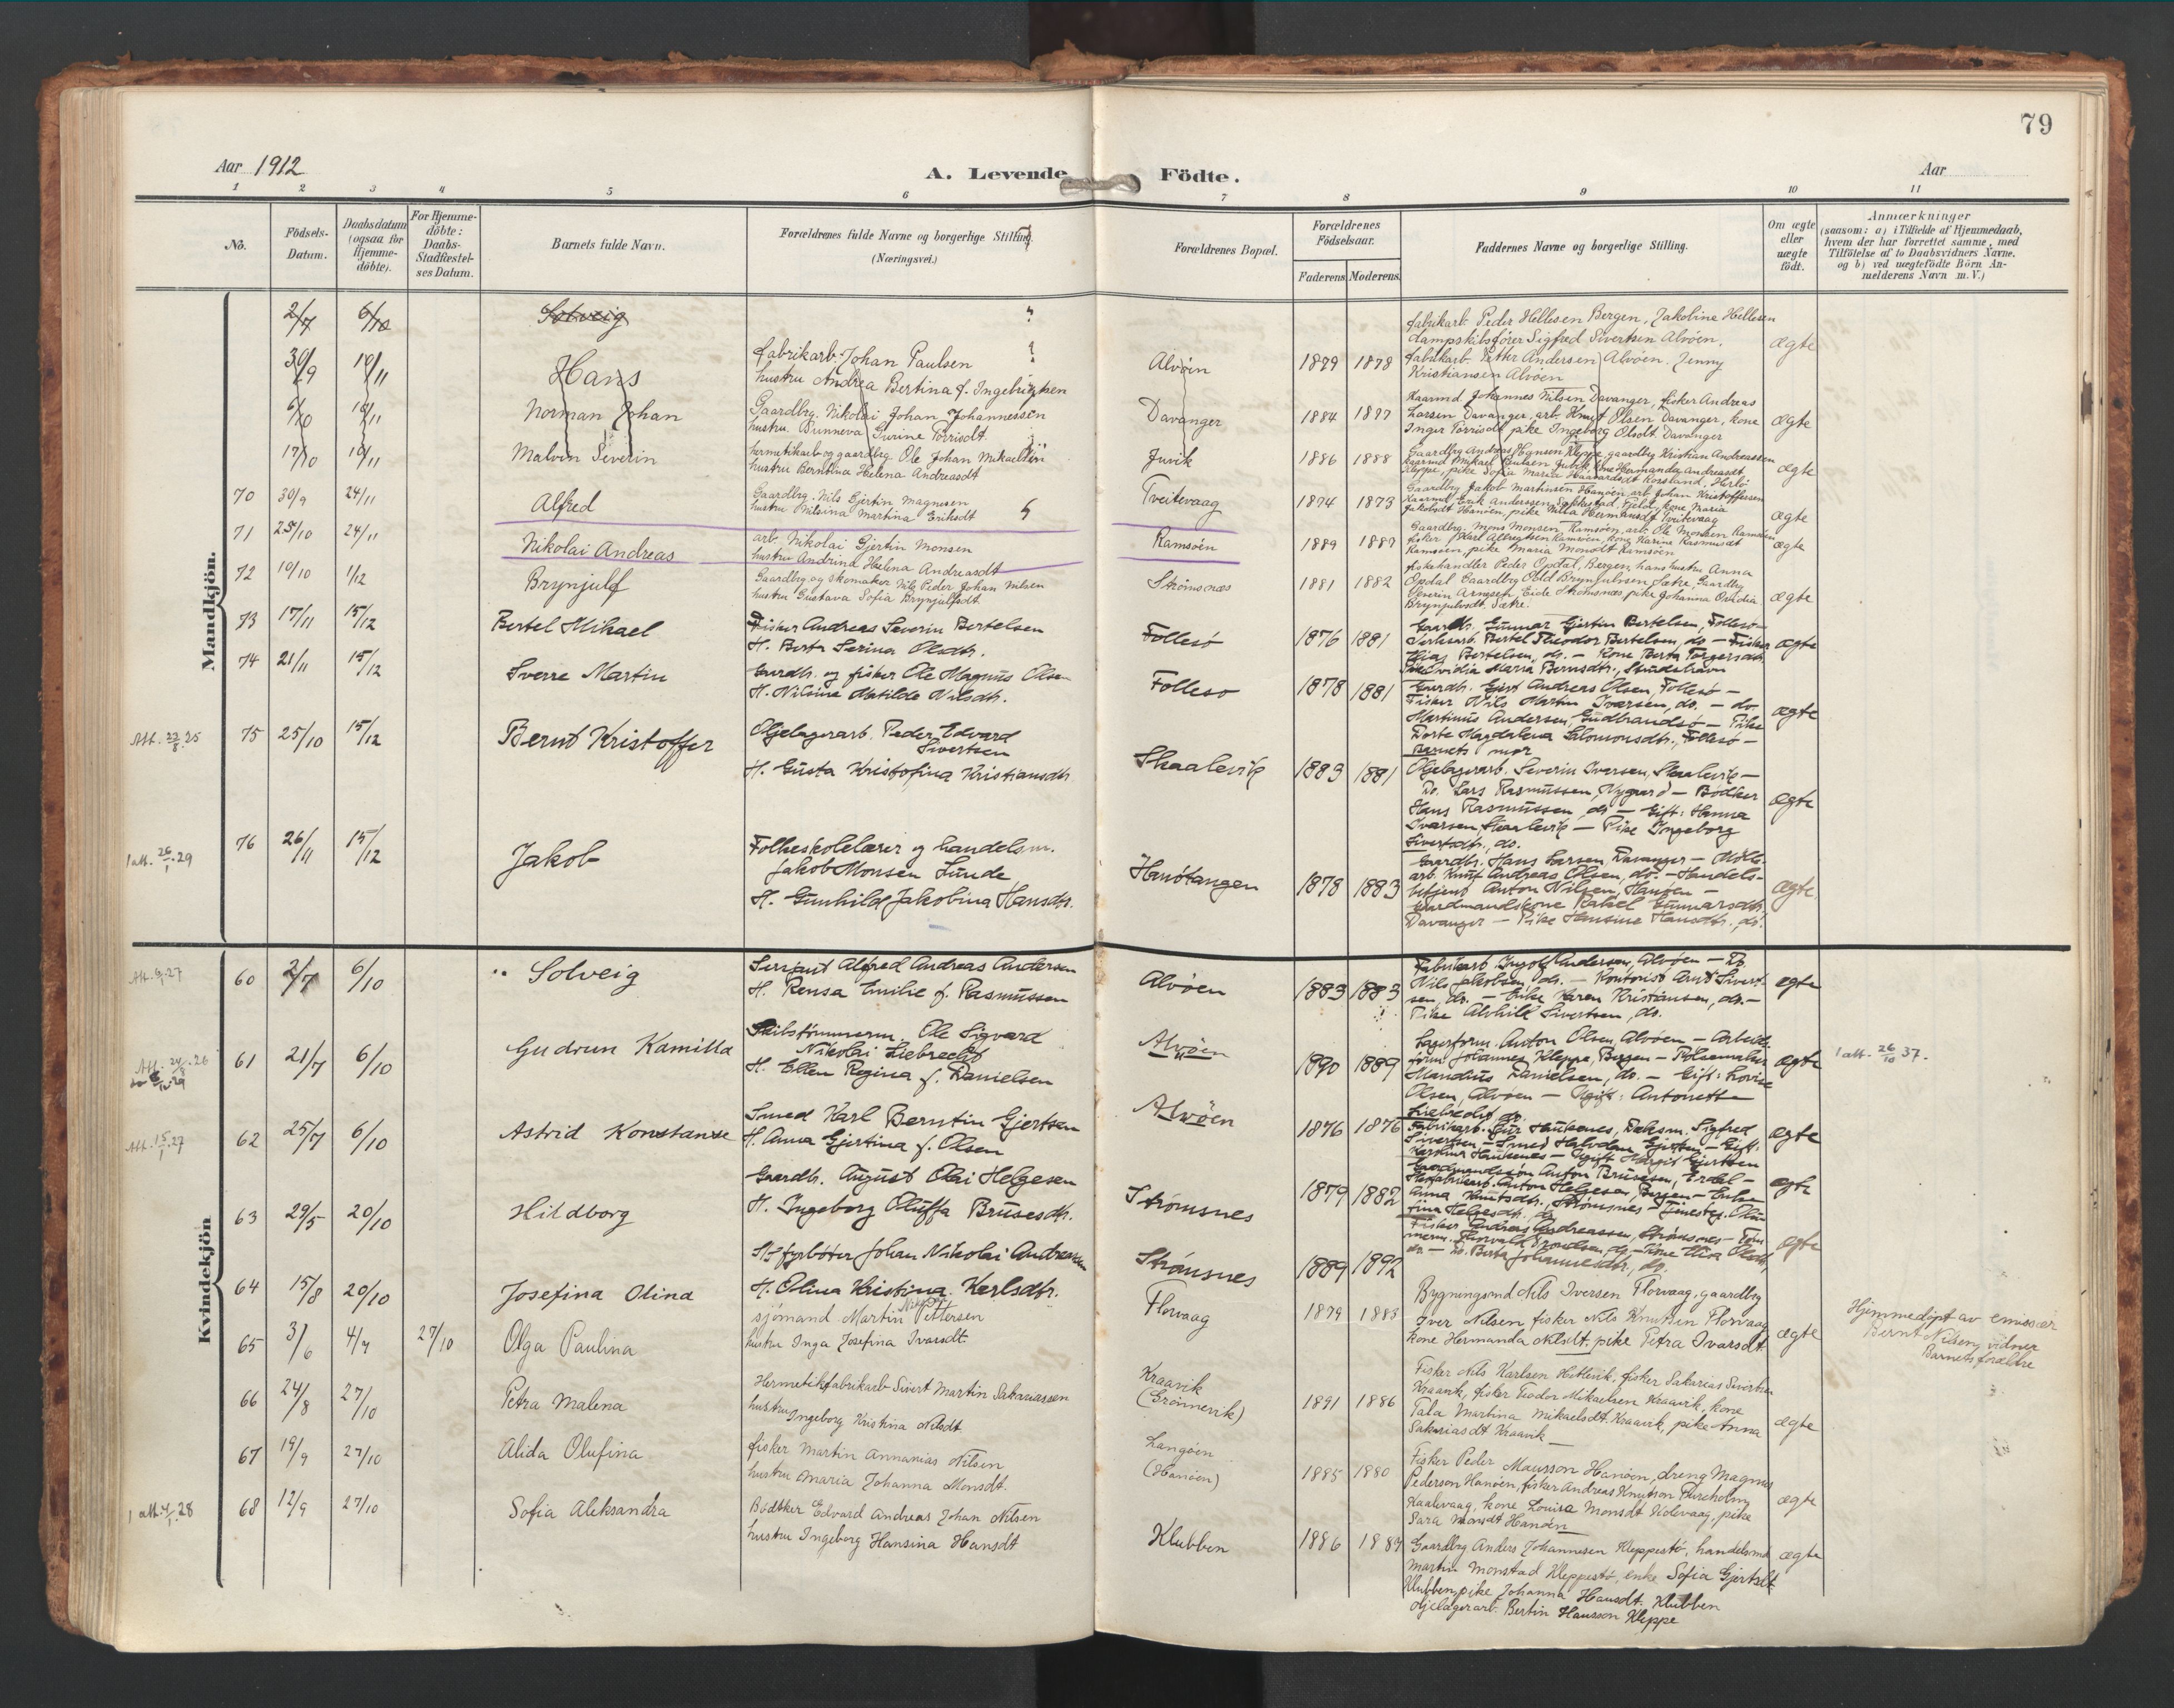 79
Aar 1912
A. Levende Födte.
Aar
1 2 3 4 5 6 7 8 9 10 11
No.
Födsels-Datum.
Daabsdatum (ogsaa for Hjemme-döbte).
For Hjemme-döbte: Daabs-Stadfæstel-ses Datum.
Barnets fulde Navn.
Forældrenes fulde Navne og borgerlige Stilling.
(Næringsvei.)
Forældrenes Bopæl.
Forældrenes Födselsaar.
Faderens Moderens
Faddernes Navne og borgerlige Stilling.
Om ægte eller uægte födt.
Anmærkninger
(saasom: a) i Tilfælde af Hjemmedaab, hvem der har forrettet samme, med Tilföielse af to Daabsvidners Navne. og b) ved uægtefödte Börn An-melderens Navn m. V.)
Mandkjön.
2/7 6/10 Solveig
fabrikarb. Peder Hellesen Bergen, Jakobine Hellesen
dampskibsfører Sigfred Sivertsen Alvøen,
30/9 10/11 Hans
fabrikarb. Johan Paulsen
hustru Andrea Bertina f. Ingebrigtsen
Alvøen 1879 1878
fabrikarb. Petter Andersen Alvøen. Jenny
Kristiansen Alvøen
ægte
6/10 10/11 Norman Johan
Gaardbrg. Nikolai Johan Johannessen
hustru Bunneva Gurine Torrisdt.
Davanger 1884 1887
Kaarmd Johannes Nilsen Davanger, fisker Andreas
Larsen Davanger, arb. Knut Olsen Davanger, kone
Inger Torrisdt pike Ingeborg Olsdt. Davanger
ægte
17/10 10/11 Malvin Severin
hermetikarb og gaardbrg Ole Johan Mikaelsen
hustru Berntina Helena Andreasdt
Juvik 1886 1888
Gaardbrg Andreas Hansen Kleppe, gaardbrg Kristian Andreassen
ægte
70 30/9 24/11 Alfred
Gaardbrg. Nils Gjertin Magnusen
hustru Nilsina Martina Eriksdt
Tveitevaag 1874 1873
Gaardbrg Jakob Martinsen Hanøen, arb. Johan Kristoffersen
Jakobsdt Hanøen, pike Nilla Hermansdt Tveitevaag
ægte
71 25/10 24/11 Nikolai Andreas
arb. Nikolai Gjertin Monsen
hustru Andrina Helena Andreasdt
Ramsøen 1889 1887
Gaardbrg. Mons Monsen, Ramsøen, arb. Ole Monsen Ramsøen
Ramsøen, pike Maria Monsdt Ramsøen
ægte
72 10/10 1/12 Brynjulf
Gaardbrg og skomaker Nils Peder Johan Nilsen
hustru Gustava Sofia Brynjulfsdt
Strømsnæs 1881 1882
fiskehandler Peder Opdal, Bergen, hans hustru Anna
Severin Arnesen Eide Strømsnæs, pike Johanna Ovidia
Brynjulvsdt. Sætre.
ægte
73 17/11 15/12 Bertel Mikael
Fisker Andreas Severin Bertelsen
H. Berta Serina Olsdtr.
Follesø 1876 1881
Gaardbr. Gunnar Gjertin Bertelsen, Follesø –
Verksarb. Bertel Theodor Bertelsen, do – Fisker
Elias Bertelsen, do. – Kone Berta Torgersdtr
ægte
74 21/11 15/12 Sverre Martin
Gaardbr. og fisker Ole Magnus Olsen
H. Nilsine Matilde Nilsdtr.
Follesø 1878 1881
Gaardbr. Gjert Andreas Olsen, Follesø –
Fisker Nils Martin Iversen, do. – do.
Martinus Andersen, Gudbrandsø – Pike
Dorte Magdalena Salomonsdtr., Follesø –
Barnets mor
ægte
Att. 22/8.25
75 25/10 15/12 Bernt Kristoffer
Oljelagerarb. Peder Edvard
Sivertsen
H. Gusta Kristofina Kristiansdtr
Skaalevik 1883 1881
Oljelagerarb. Severin Iversen, Skaalevik –
Do. Lars Rasmussen, Nygaard – Bødker
Hans Rasmussen, do – Gift: Hanna
Iversen, Skaalevik – Pike Ingeborg
Sivertsdtr., do.
ægte
1 att. 26/1.29
76 26/11 15/12 Jakob
Folkeskolelærer og handelsm.
Jakob Monsen Lunde
H. Gunhild Jakobina Hansdtr.
Hanøtangen 1878 1883
Gaardbr. Hans Larsen, Davanger – Mølle-
arb. Knut Andreas Olsen, do. – Handels-
betjent Anton Nilsen, Haugen –
Gaardmandskone Rakel Gunnarsdtr.
Davanger – Pike Hansine Hansdtr., do.
ægte
Kvindekjön
60 2/7 6/10 Solveig
Serjant Alfred Andreas Andersen
H. Rensa Emilie f. Rasmussen
Alvøen 1883 1883
Fabrikarb Ingolf Andersen, Alvøen – Do.
Nils Jakobsen, do. – Kontorist Arnt Sivert-
sen, do. – Enke Karen Kristiansen, do. –
Pike Alvhild Sivertsen, do.
ægte
61 21/7 6/10 Gudrun Kamilla
Skibstømmerm. Ole Sigvard
Nikolai Liebrecht
H. Ellen Regina f. Danielsen
Alvøen 1890 1889
Lagerform. Anton Olsen, Alvøen – Arbeids-
form Johannes Kleppe, Bergen – Pølsemaker
Mandius Danielsen, do. – Gift: Lovise
Olsen, Alvøen – Ugift: Antonette
Liebrecht do.
ægte
1 att. 26/10 37.
62 25/7 6/10 Astrid Konstanse
Smed Karl Berntin Gjertsen
H. Anna Gjertina f. Olsen
Alvøen 1876 1876
Sivertsen – Smed Halvdan Gjertsen – Gift:
Karoline Haukenes – Ugift Margit Gjertsen
ægte
63 29/5 20/10 Hildborg
Gaardbr. August Olai Helgesen
H. Ingeborg Oluffa Brusesdtr.
Strømsnes 1879 1882
Anna Knutsdtr., Strømsnes – Tjenestep. Olen-
tina Helgesdtr., do
ægte
64 15/8 20/10 Josefina Olina
Sk. fyrbøter Johan Nikolai Andreassen
H. Olina Kristina Karlsdtr.
Strømsnes 1889 1892
Fisker Andreas Andreassen, Strømsnes – Tøm-
do – Do. Berta Johannesdtr., do.
ægte
65 3/6 4/7 27/10 Olga Paulina
sjømand Martin Pettersen
hustru Inga Josefina Ivarsdt.
Florvaag 1879 1883
Bygningsmd Nils Iversen Florvaag, gaardbrg
Iver Nilsen fisker Nils Knutsen Florvaag
kone Hermanda Nilsdt. pike Petra Ivarsdt
ægte
Hjemmedøpt av emissær
Bernt Nilsen, vidner
Barnets forældre
66 24/8 27/10 Petra Malena
Hermetikfabrikarb Sivert Martin Sakariassen
hustru Ingeborg Kristina Nilsdt
Kraavik
(Grønnevik)
1891 1886
Fisker Nils Karlsen Hetlevik, fisker Sakarias Sivertsen
Kraavik, fisker Teodor Mikaelsen Kraavik, kone
Tala Martina Mikaelsdt. Kraavik, pike Anna
Sakariasdt Kraavik –
ægte
67 19/9 27/10 Alida Olufina
fisker Martin Annanias Nilsen
hustru Maria Johanna Monsdt.
Langøen
(Hanøen)
1885 1880
Fisker Peder Maursson Hanøen, dreng Magnus
Pederson Hanøen, fisker Andreas Knutson
kone Lovisa Monsdt Kolevaag, pike
Sara Monsdt Hanøen
ægte
68 12/9 27/10 Sofia Aleksandra
Bødtker Edvard Andreas Johan Nilsen
hustru Ingeborg Hansina Hansdt
Klubben 1886 1889
Gaardbrg Anders Johannesen Kleppestø, handelsmd
Martin Monstad Kleppestø, enke Sofia Gjertsdt
Klubben, pike Johanna Hansdt. Klubben
oljelagerarb. Bertin Hansson Kleppe
ægte